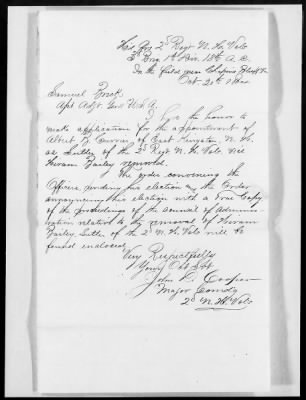 Hd Qrs 2d Regt N. H. Vols
3d Brig 1st Div. 18th A. C.
In the field near Chapins Bluff Va
Oct. 20th 1864
Samuel Breck
Asst Adjt. Genl U.S.A.
I have the honor to
make application for the appointment of
Albert B. of East Kingston, N. H.
as Sutler of the 2d Regt N. H. Vols vice
Hiram Bailey removed.
The order convening the
Officers, his election & the Order
announcing this election with a True Copy
of the proceedings of the Council of Adminis-
tration related to the removal of Hiram
Bailey Sutler of the 2d N. H. Vols will be
found enclosed
Very Respectfully
Your Obt Svt
John D. Cooper
Major Comdg
2d N. H. Vols